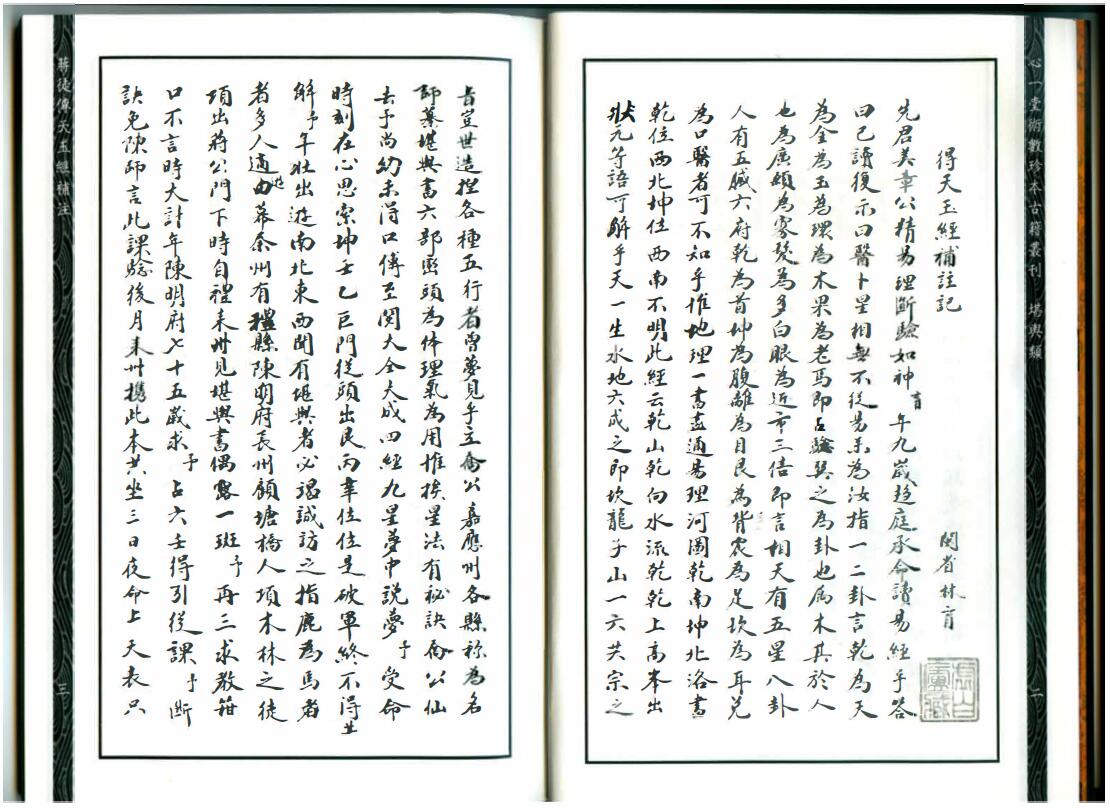 心一堂術數珍本古籍叢刊 堪輿類
二
得天玉經補註記
閩省林育
先君美章公精易理斷驗如神育年九歲趨庭承命讀易經乎答
曰已讀復示曰醫卜星相無不從易來為汝指一二卦言乾為天
為金為玉為環為木果為老馬即占驗巽之為卦也屬木其於人
也為廣顙為寡髮為多白眼為近市三倍即言相天有五星八卦
人有五臟六府乾為首坤為腹離為目艮為背震為足坎為耳兌
為口醫者可不知乎惟地理一書盡通易理河圖乾南坤北洛書
乾位西北坤位西南不明此經云乾山乾向水流乾乾上高峯出
狀元等語可解乎天一生水地六成之即坎龍子山一六共宗之
旨豈世造捏各種五行者曾夢見乎立喬公嘉應州各縣稱為名
師纂堪輿書六部巒頭為体理氣為用推挨星法有秘訣喬公仙
去予尚幼未得口傳至閱大全大成四經九星夢中說夢予受命
時刻在心思索坤壬乙巨門從頭出艮丙辛位位是破軍終不得其
解予年壯出遊南北東西聞有堪輿者必竭誠訪之指鹿為馬者
者多人適由遊幕余州有禮縣陳明府長州顧塘橋人項木林之徒
項出蔣公門下時自禮来州見堪輿書偶露一班予再三求教箝
口不言時大計年陳明府七十五歲求予占六壬得引從課予斷
訣免陳師言此課驗後月来卅攜此本共坐三日夜命上天表只
蔣徒傳天玉經補注
三